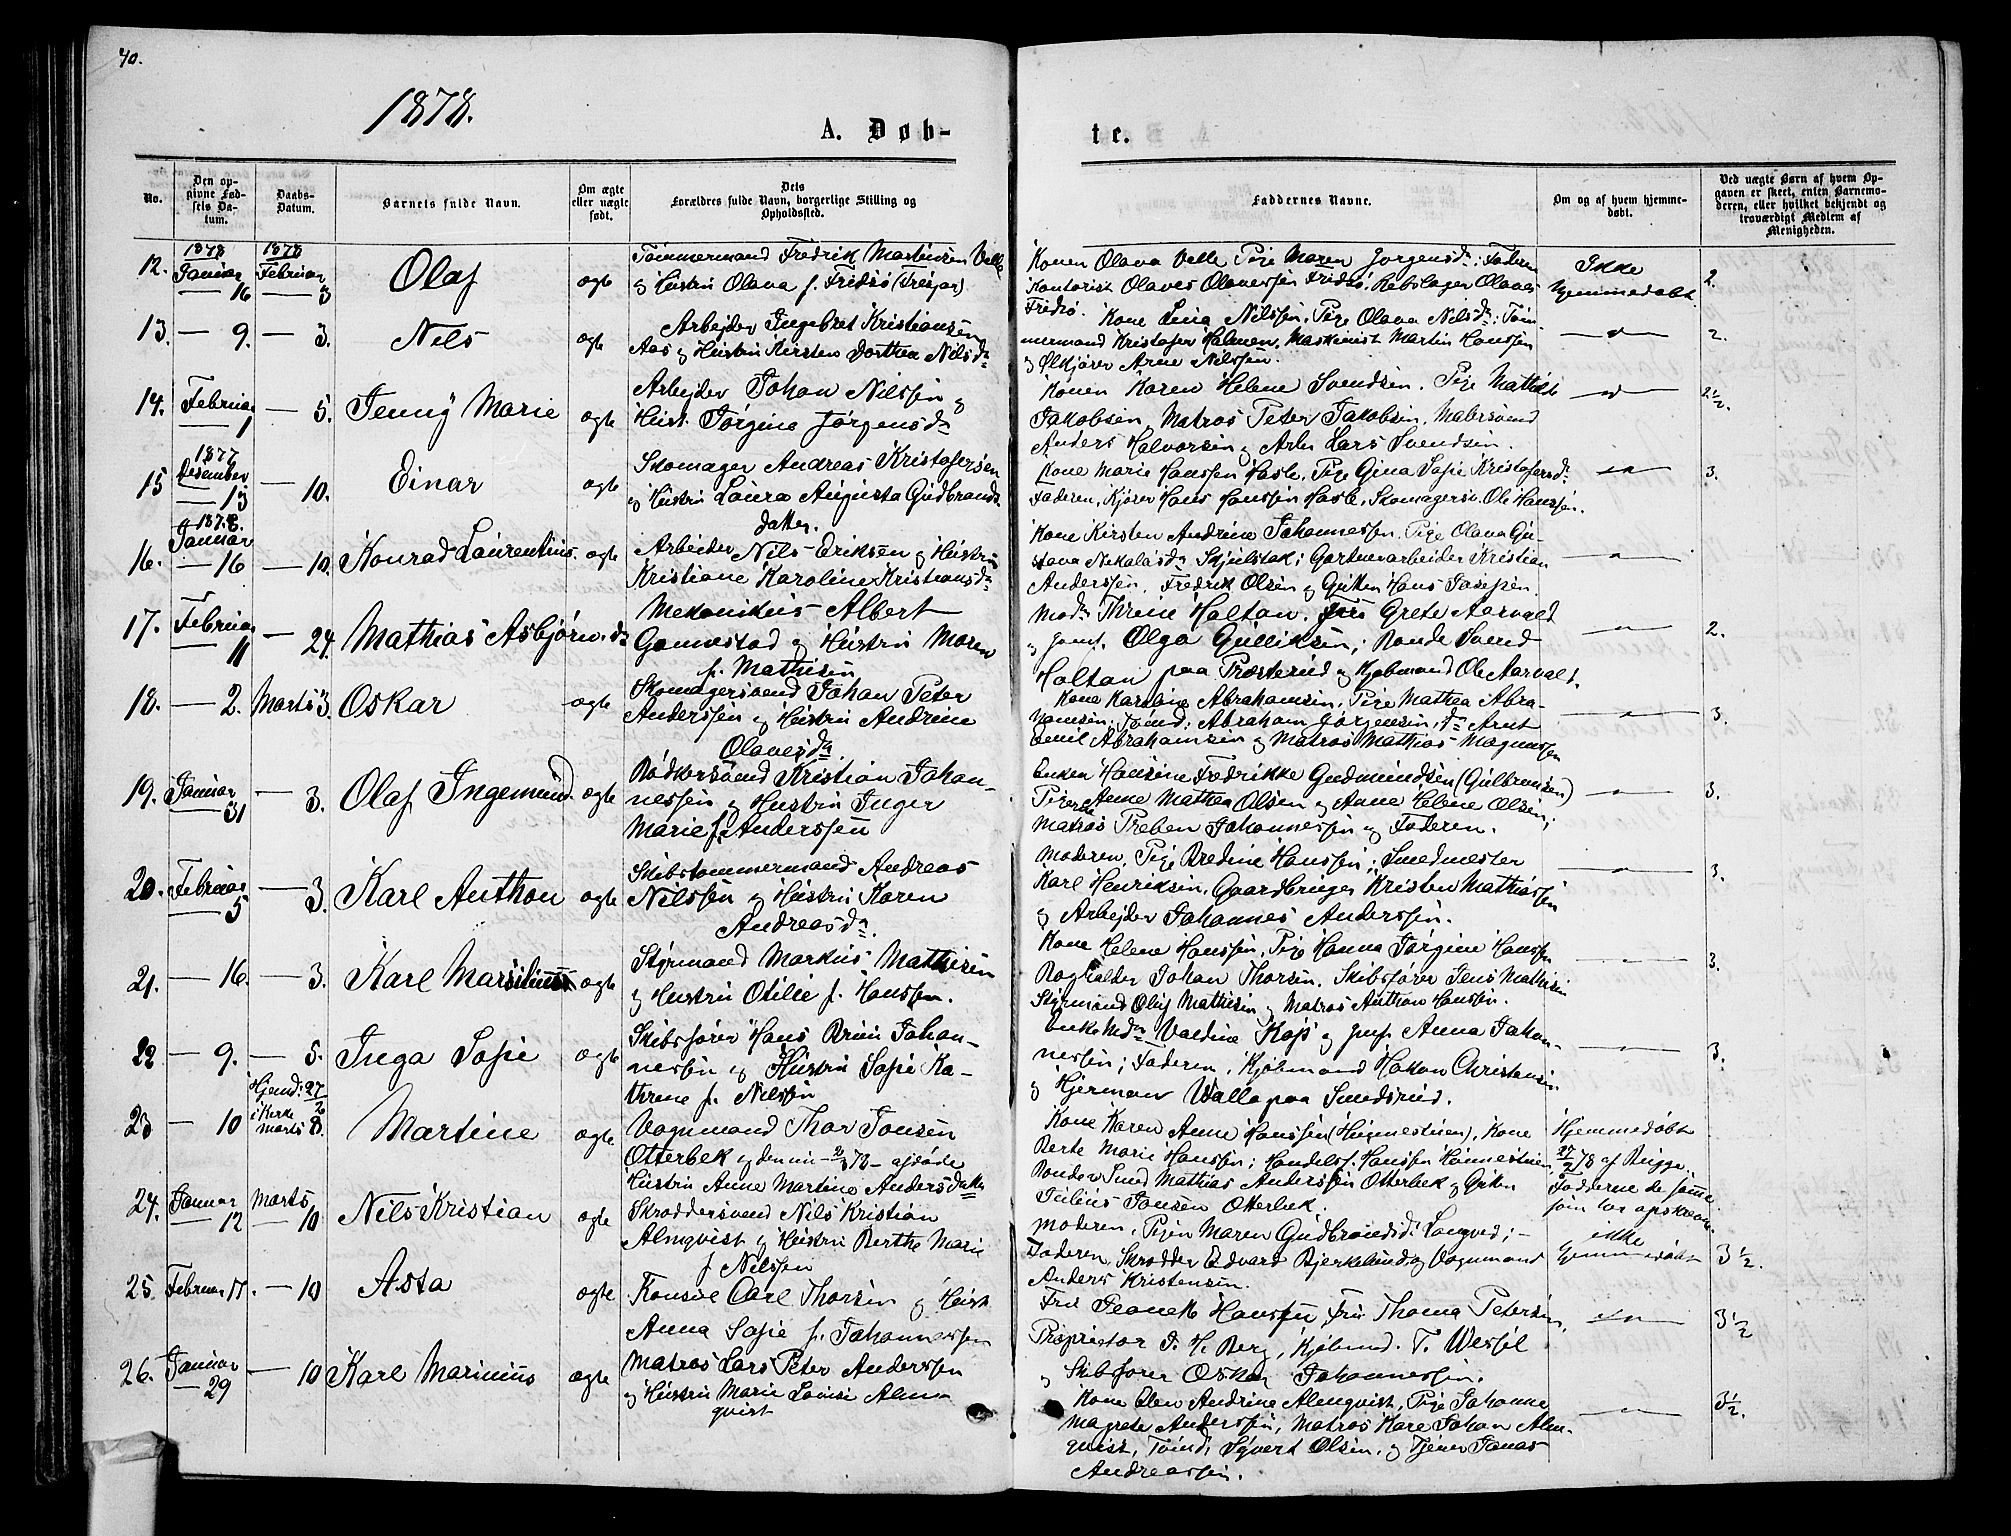 40.
1878.
A. Døb-
te.
No.
Den op-
givne Fød-
sels Da-
tum.
Daabs-
Datum.
Barnets fulde Navn.
Om ægte
eller uægte
født.
Dets
Forældres fulde Navn, borgerlige Stilling og
Opholdssted.
Faddernes Navne.
Om og af hvem hjemme-
døbt.
Ved uægte Børn af hvem Op-
gaven er skeet, enten Barnemo-
deren, eller hvilket bekjendt og
troværdigt Medlem af
Menigheden.
12.
1878
Januar
16
1878
Februar
3
Olaf
ægte
Tømmermand Fredrik Martinsen Velle
og Hustru Olava f. Fridsø
Konen Olava Velle Pige Maren Jørgensdr; Faderen
Kontorist Olaves Olavessen Fridsø, Rebslager Olaves
Fredsø.
Ikke
hjemmedøbt
2.
13.
— 9.
— 3.
Nils
ægte
Arbejder Ingebret Kristiansen
Aas og Hustru Kirsten Dorthea Nilsdr
Kone Lina Nilssen, Pige Olava Nilsdr; Tøm-
mermand Kristofer Holmen, Maskinist Martin Hanssen
og Ølkjører Arne Nilssen.
— " —
2.
14.
Februar
1
— 5.
Jenny Marie
ægte
Arbejder Johan Nilssen og
Hust. Jørgine Jørgensdr
Konen Karen Helene Svendsen. Pige Mathilde
Jakobsen, Matros Peter Jakobsen, Malersvend
Anders Halvorsen og Arb. Lars Svendsen.
— " —
2½.
15
1877
Desember
13
— 10.
Einar
ægte
Skomager Andreas Kristofersen
og Hustru Laura Augusta Gudbrands-
datter.
Kone Marie Hanssen Hasle, Pige Gina Sofie Kristofersdr
Faderen, Kjører Hans Hanssen Hasle, Skomagersv. Ole Hanssen.
— " —
3.
16.
1878.
Januar
— 16
— 10.
Konrad Laurentius.
ægte
Arbeider Nils Eriksen og Hustru
Kristiane Karoline Kristiansdr
Kone Kirsten Andrine Johannessen, Pige Olava Gu-
stava Nikolaisdr; Gartnerarbeider Kristian
Anderssen, Fredrik Olsen og Gutten Hans Josefsen.
— " —
17.
Februar
11
— 24.
Mathias Asbjørn.
Mekanikus Albert
Gannestad og Hustru Maren
f. Mathisen
Madm Thrine Holtan. Frk Grete Aarvald
og Jomf. Olga Gulliksen; Bonde Svend
Holtan paa Præsterud og Kjøbmand Ole Aarvald.
— " —
2.
18.
— 2.
Marts 3.
Oskar
ægte
Skomagersvend Johan Peter
Anderssen og Hustru Andrine
Olavesdr
Kone Karoline Abrahamsen, Pige Mathea Abra-
hamsen; Tømd: Abraham Jørgensen, do Arnt
Emil Abrahamsen og Matros Mathias Magnussen
— " —
3.
19.
Januar
31
— 3.
Olaf Ingemund.
ægte
Bødkersvend Kristian Johan-
nessen og Hustru Inger
Marie f. Anderssen
Enken Hansine Fredrikke Gudmundsen (Gulbransen)
Pigerne Anne Mathea Olsen og Anne Helene Olsen;
Matros Preben Johannessen og Faderen.
— " —
3.
20.
Februar
5
— 3.
Karl Anthon
ægte
Skibstømmermand Andreas
Nilssen og Hustru Karen
Andreasdr.
Moderen, Pige Bredine Hanssen; Smedmester
Karl Henriksen, Gaardbruger Kristen Mathiassen
og Arbejder Johannes Anderssen.
— " —
3.
21.
— 16.
— 3.
Karl Marsilius
ægte
Styrmand Markus Mathisen
og Hustru Otilie f. Hanssen.
Kone Helene Hanssen, Pige Hanna Jørgine Hanssen
Bogholder Johan Thorsen, Skibsfører Jens Mathisen
Styrmand Oluf Mathisen og Matros Anthon Hanssen.
— " —
3.
22
— 9.
— 5.
Inga Sofie
ægte
Skibsfører Hans Bruun Johan-
nessen og Hustru Sofie Ka-
thrine f. Nilssen
Enke Mdm Valdine og Jmfr. Anna Johan-
nessen; Faderen, Kjøbmand Hakon Christensen
og Hjerman Walle paa Smedsrud.
— " —
3.
23
— 10
Hjemd: 27/2
i Kirke
Marts 8.
Martine
ægte
Vognmand Thor Jonsen
Otterbek og den nu 2/3 78 afdøde
Hustru Anne Martine Andersdatter
Kone Karen Anne Hanssen, Kone
Berte Marie Hanssen; Handelsf. Hanssen
Bonde Smed Mathias Anderssen Otterbek og Gutten
Julius Jonsen Otterbek.
Hjemmedøbt
27/2 78 af Bugge.
Fadderne de samme
som for opskrevne
24.
Januar
12
Marts
— 10
Nils Kristian
ægte
Skræddersvend Nils Kristian
Almqvist og Hustru Berthe Marie
f Nilssen
Moderen, Pigen Maren Gudbrandsdr Langved;
Faderen, Skrædder Edvard Bjerkelund og Vognmand
Anders Kristensen.
ikke
hjemmedøbt
3½.
25.
Februar 17.
— 10
Asta
ægte
Konsul Carl Thorsen og Hust.
Anna Sofie f. Johannessen
Fru Jeanette Hanssen, Fru Thoma Petersen,
Proprietær J. H. Berg, Kjøbmd. T. Wessel
og Skibsfører Oskar Johannessen.
— " —
3½
26.
Januar
29
— 10
Karl Marinius
ægte
Matros Lars Peter Anderssen
og Hustru Marie Lovise Alm-
qvist
Kone Elen Andrine Almqvist, Pige Johanne
Magrete Anderssen, Matros Karl Johan Alm-
qvist, Tømd; Syvert Olsen, og Tjener Jonas
Andreassen.
— " —
3½.